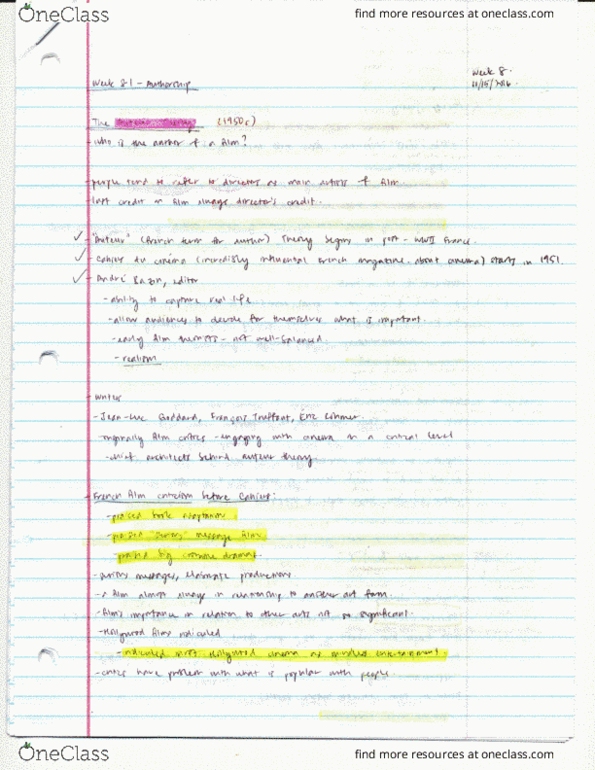 OneClass
find more resources at oneclass.com
Week 8.
11/15/2016
Week 8.1 - Authorship
The (1950s)
- who is the author of a film?
- people tend to refer to directors as main artists of film.
- last credit on film always director's credit.
- "Auteur" (French term for author) Theory begins in post-WWII France.
- Cahiers du cinéma (incredibly influential French magazine about cinema) starts in 1951.
- André Bazin, editor
- ability to capture real life
- allow audiences to decide for themselves what is important.
- early film theorists - not well-balanced.
- realism
- writer
- Jean-Luc Goddard, François Truffaut, Eric Rohmer
- originally film critics - engaging with cinema on a critical level
- chief architects behind auteur theory.
- French film criticism before Cahiers:
- praised book adaptations
- praised "serious" message films
- praised big costume dramas.
- serious messages, elaborate productions.
- film almost always in relationship to another art form.
- film's importance in relation to other arts not so significant.
- Hollywood films ridiculed
- ridiculed most Hollywood cinema as mindless entertainment.
- critics have problem with what is popular with people.
OneClass
find more resources at oneclass.com